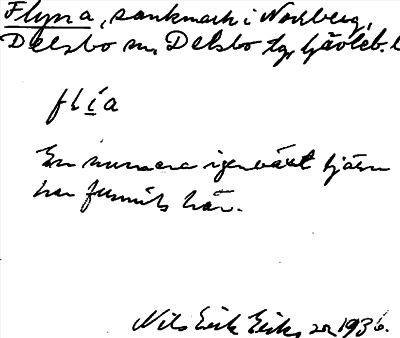 Flyna, sankmark i Norrberg,
Delsbo sn, Delsbo tg, Gävleb. l
flia
En numera igenväxt tjärn
har funnits här.
Nils Erik Eriksson 1936.